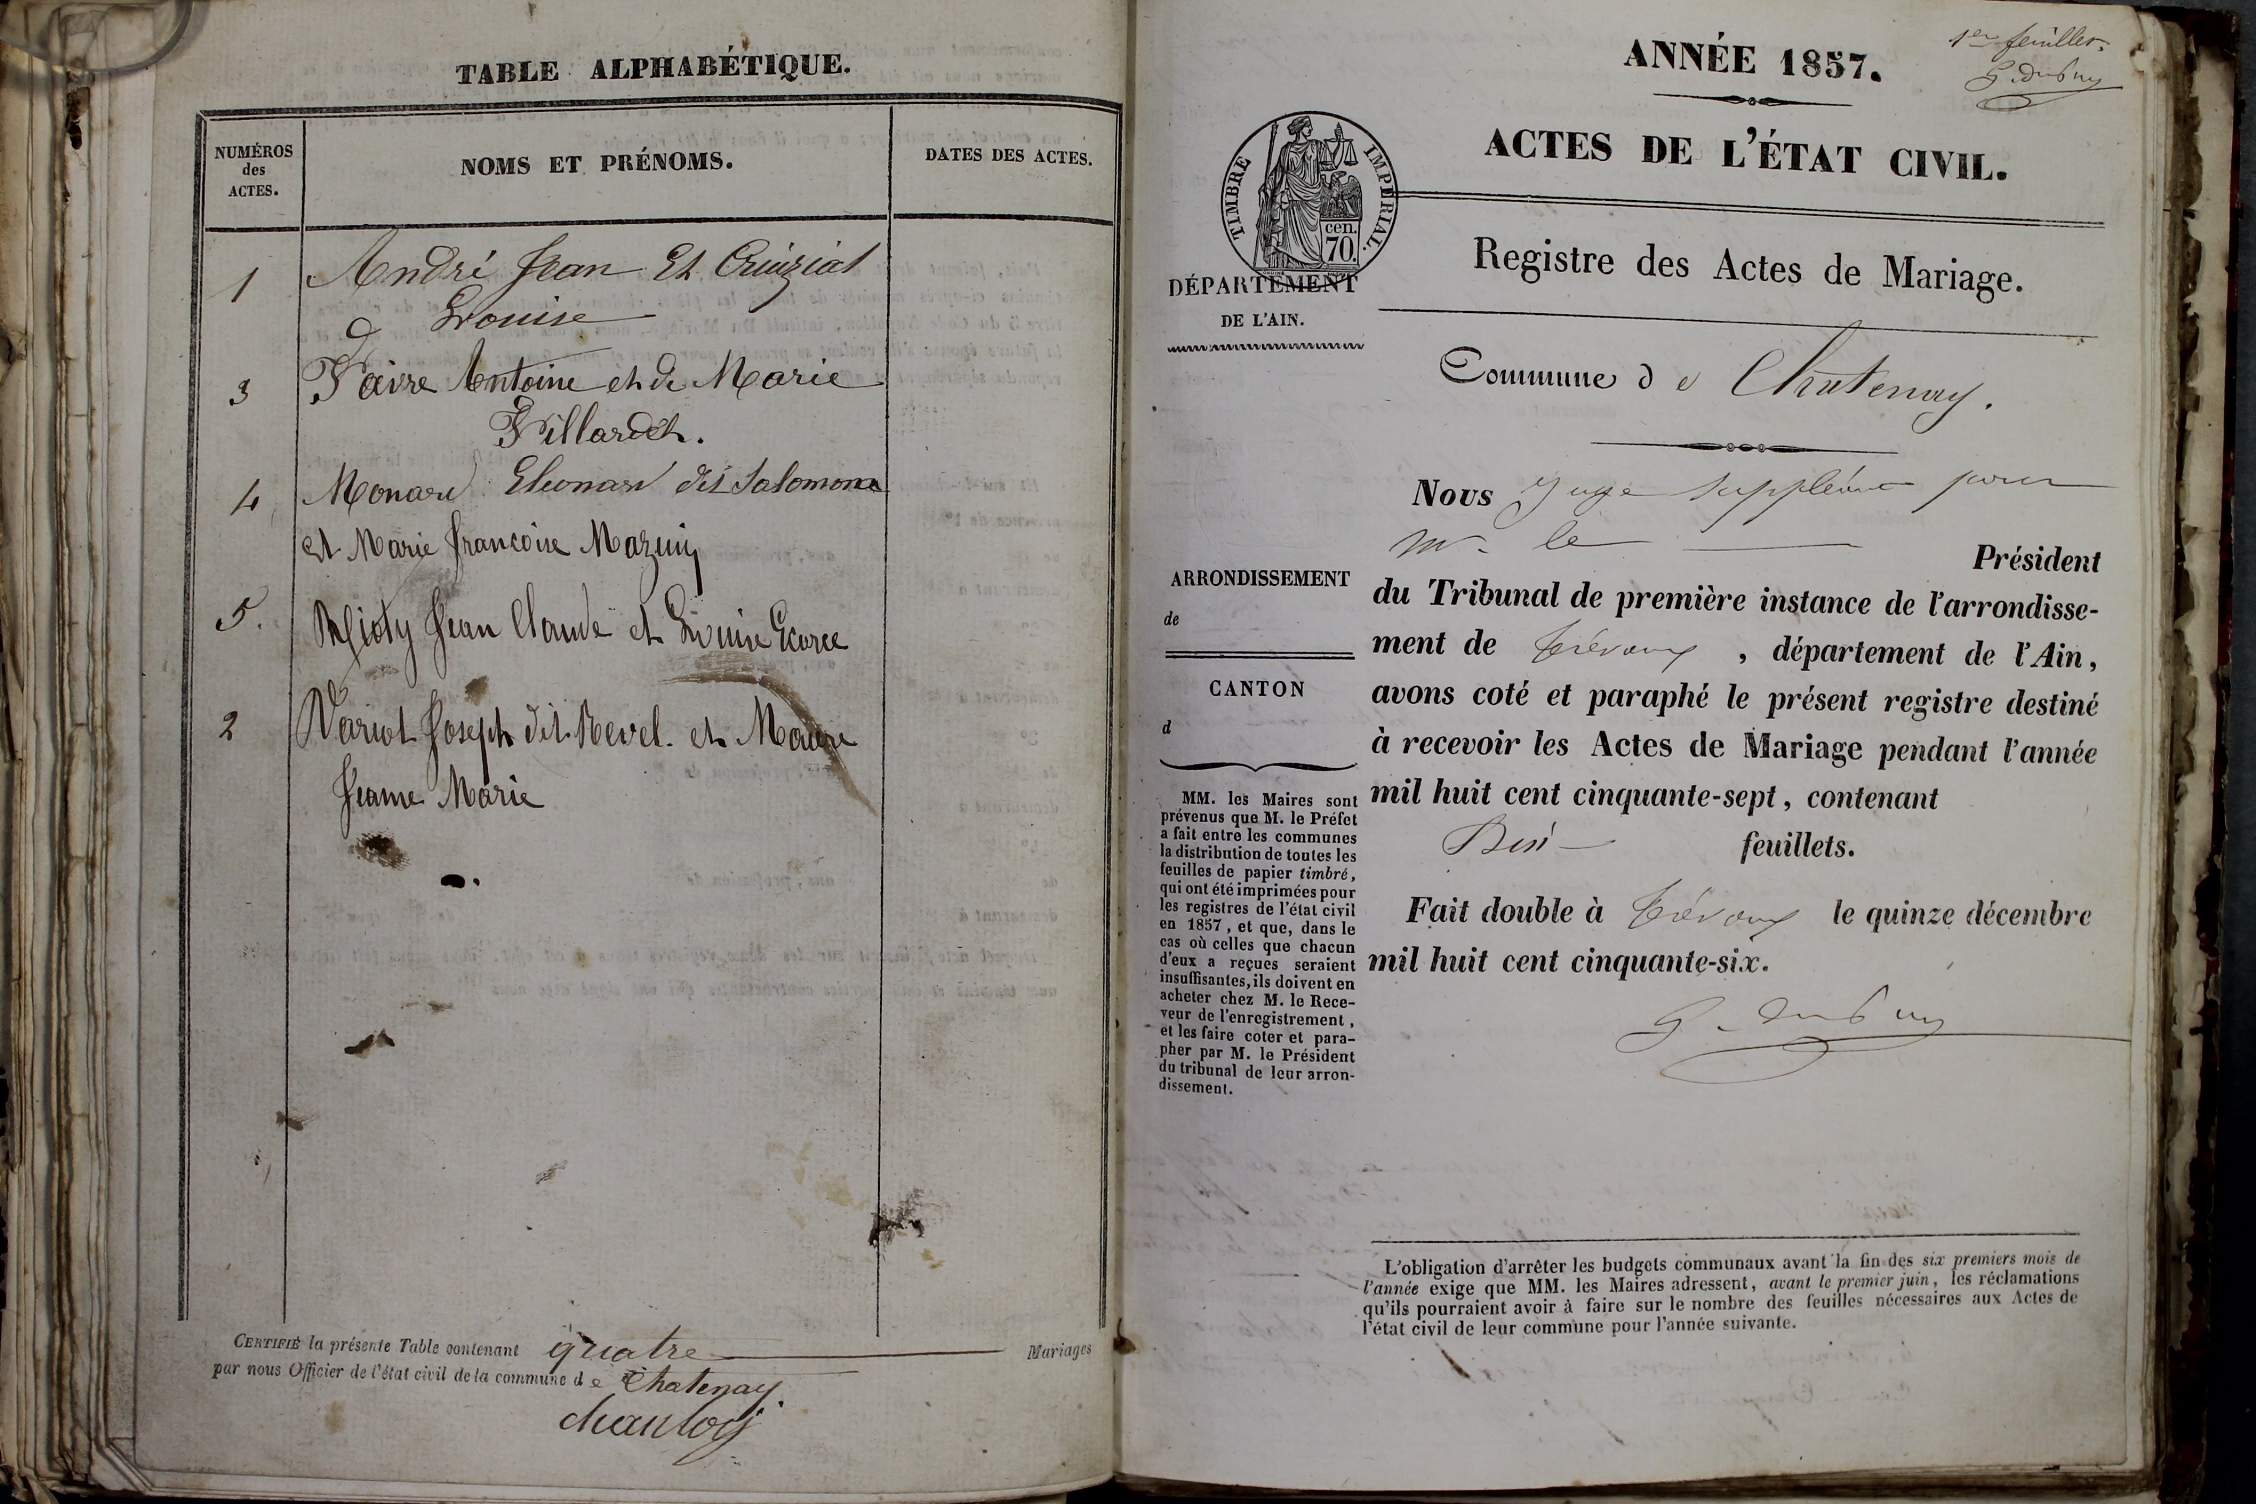 TABLE ALPHABÉTIQUE.
NUMÉROS
des
ACTES.
NOMS ET PRÉNOMS.
DATES DES ACTES.
1 André Jean Et Cruiziat
Louise
3 Favre Antoine et de Marie
Villardet.
4 Monard Eleonard dit Salomon
et Marie Françoise Mazuiy
5. Mioty Jean Claude et Louise Ecorce
2 Variot Joseph dit Revel. et Maure
Jeanne Marie
CERTIFIÉ la présente Table contenant quatre Mariages
par nous Officier de l'état civil de la commune de Chatenay
1er feuillet.
G. Dubuy
ANNÉE 1857.
ACTES DE L'ÉTAT CIVIL.
TIMBRE IMPÉRIAL.
cen.
70.
DÉPARTEMENT
DE L'AIN.
Registre des Actes de Mariage.
Commune de Chatenay.
Nous Juge Suppléant pour
Mr. le Président
du Tribunal de première instance de l'arrondisse-
ment de Trévoux, département de l'Ain,
avons coté et paraphé le présent registre destiné
à recevoir les Actes de Mariage pendant l'année
mil huit cent cinquante-sept, contenant
feuillets.
Fait double à Trévoux le quinze décembre
mil huit cent cinquante-six.
G. Dubuy
ARRONDISSEMENT
de
CANTON
d
MM. les Maires sont
prévenus que M. le Préfet
a fait entre les communes
la distribution de toutes les
feuilles de papier timbré,
qui ont été imprimées pour
les registres de l'état civil
en 1857, et que, dans le
cas où celles que chacun
d'eux a reçues seraient
insuffisantes, ils doivent en
acheter chez M. le Rece-
veur de l'enregistrement,
et les faire coter et para-
pher par M. le Président
du tribunal de leur arron-
dissement.
L'obligation d'arrêter les budgets communaux avant la fin des six premiers mois de
l'année exige que MM. les Maires adressent, avant le premier juin, les réclamations
qu'ils pourraient avoir à faire sur le nombre des feuilles nécessaires aux Actes de
l'état civil de leur commune pour l'année suivante.